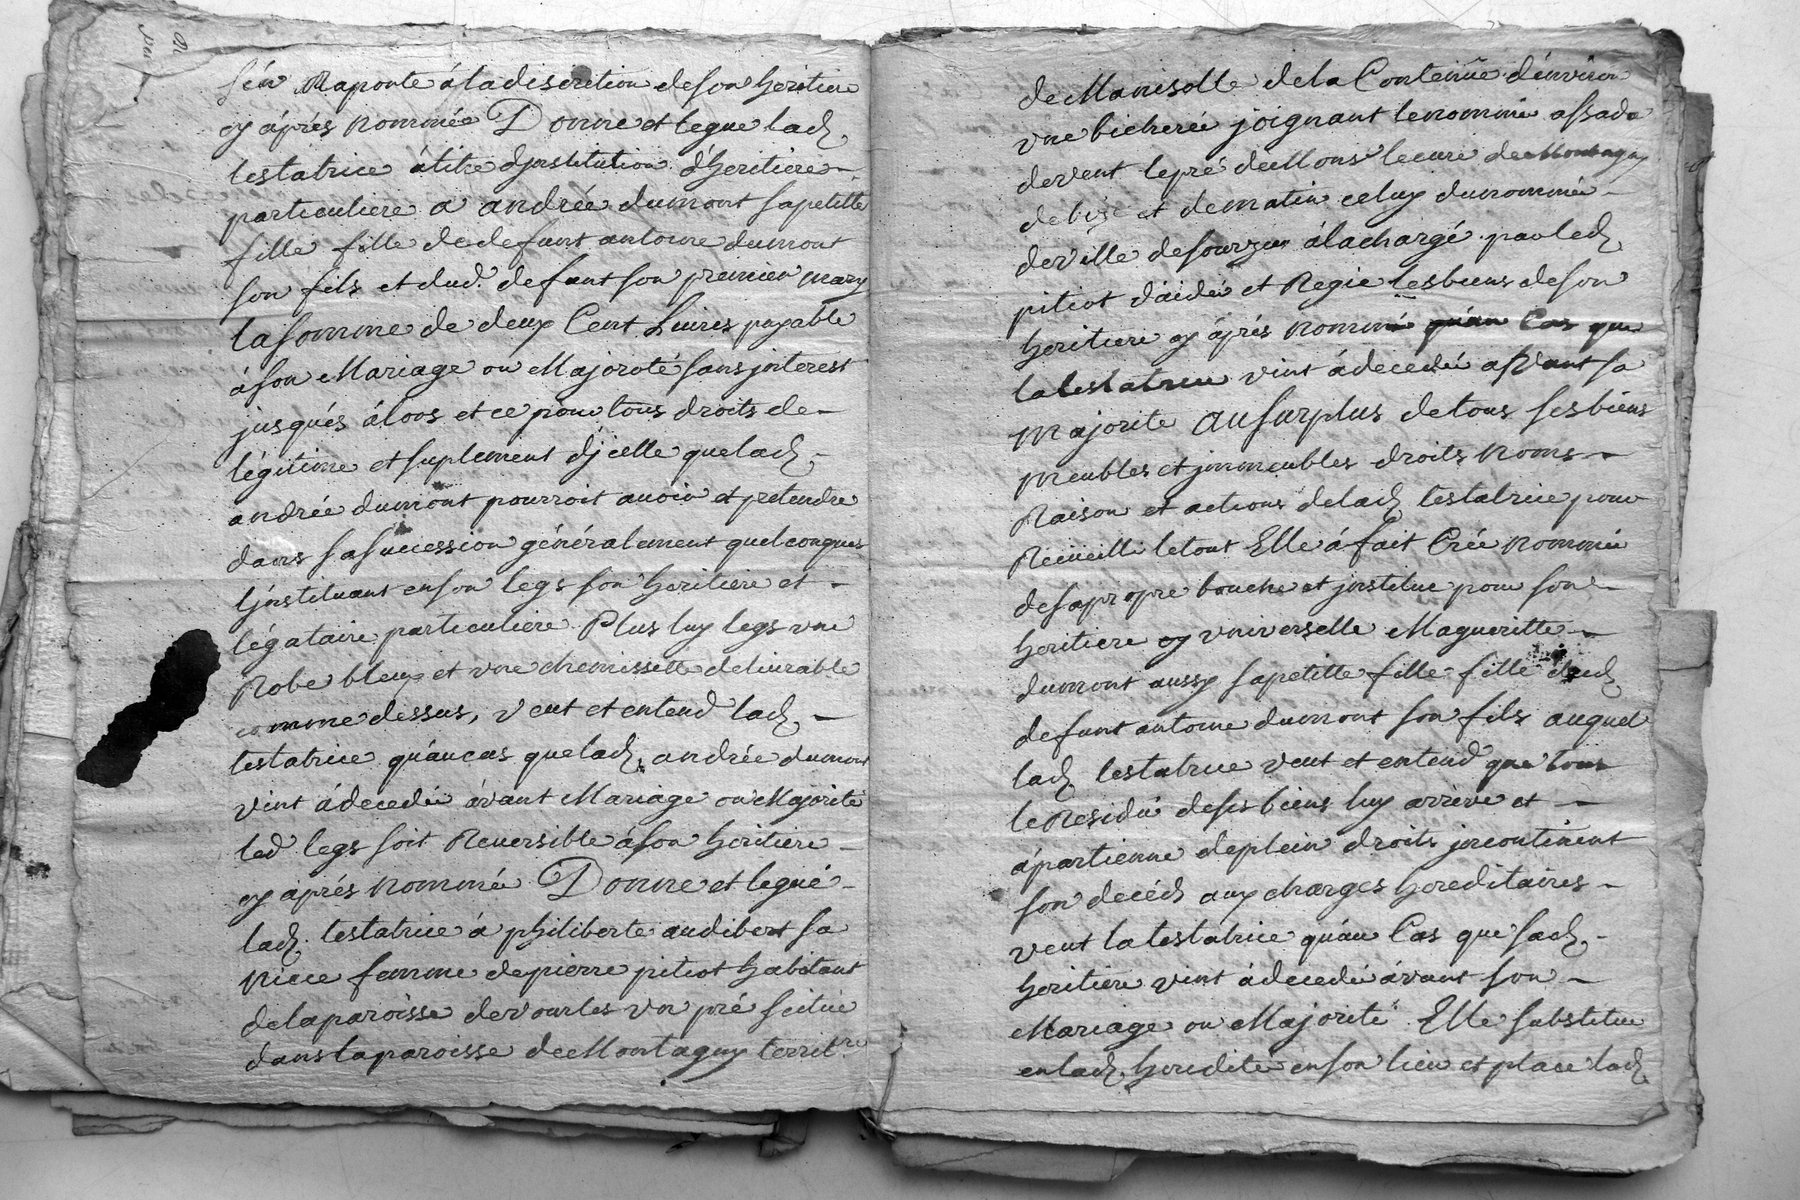 s'en Raporte á la discretion de son heritiere
cy áprés nommée Donne et legue lad.
testatrice á titre djnstitution d'heritiere
particuliere a andrée dumont sa petitte
fille fille de defunt antoine dumont
son fils et dud. defunt son premier mary
la somme de deux Cent Liures payable
á son Mariage ou Majorité sans jnterest
jusqués álors et ce pour tous droits de
légitime et suplement djcelle que lad.
andrée dumont pourroit auoir et pretendre
dans sa sucession généralement quelconques
l'jnstituant en son legs son heritiere et
légataire particuliere Plus luy legs vne
Robe bleux et vne chemissette deliurable
comme dessus, veut et entend lad.
testatrice qu'áu cas que lad. andrée dumont
vint á decedér ávant Mariage ou Majorité
led legs soit Reuersible á son heritiere
cy áprés nommée Donne et legue
lad. testatrice á philiberte audibert sa
Niece femme de pierre pitiot habitant
de la paroisse de vourles vn pré scitué
dans la paroisse de Montagny territ.re
de Manisolle de la Contenüe d'énviron
vne bicherée joignant le nommé assada
de vent le pré de Mons.r le curé de Montagny
de bise et de matin celuy du nommé
deville de sourzy á la chargé par led.
pitiot d'áidér et Regir les biens de son
heritiere cy áprés nommé qu'áu Cas que
la testatrice vint á decedér avant sa
Majorite Au surplus de tous ses biens
Meubles et jmmeubles droits Noms
Raison et actions de lad. testatrice pour
Recüeillir le tout Elle á fait Crée nommée
de sa propre bouche et jnstitue pour son
heritiere vniverselle Magueritte
dumont aussy sa petitte fille fille dud.
defunt antoine dumont son fils auquel
lad. testatrice veut et entend que tous
le Residü de ses biens luy arrive et
ápartienne de plein droits jncontinent
son decéd aux charges hereditaires
veut la testatrice qu'áu Cas que sad.
heritiere vint á decedér ávant son
Mariage ou Majorité Elle substitue
en lad. heredité en son lieu et place lad.